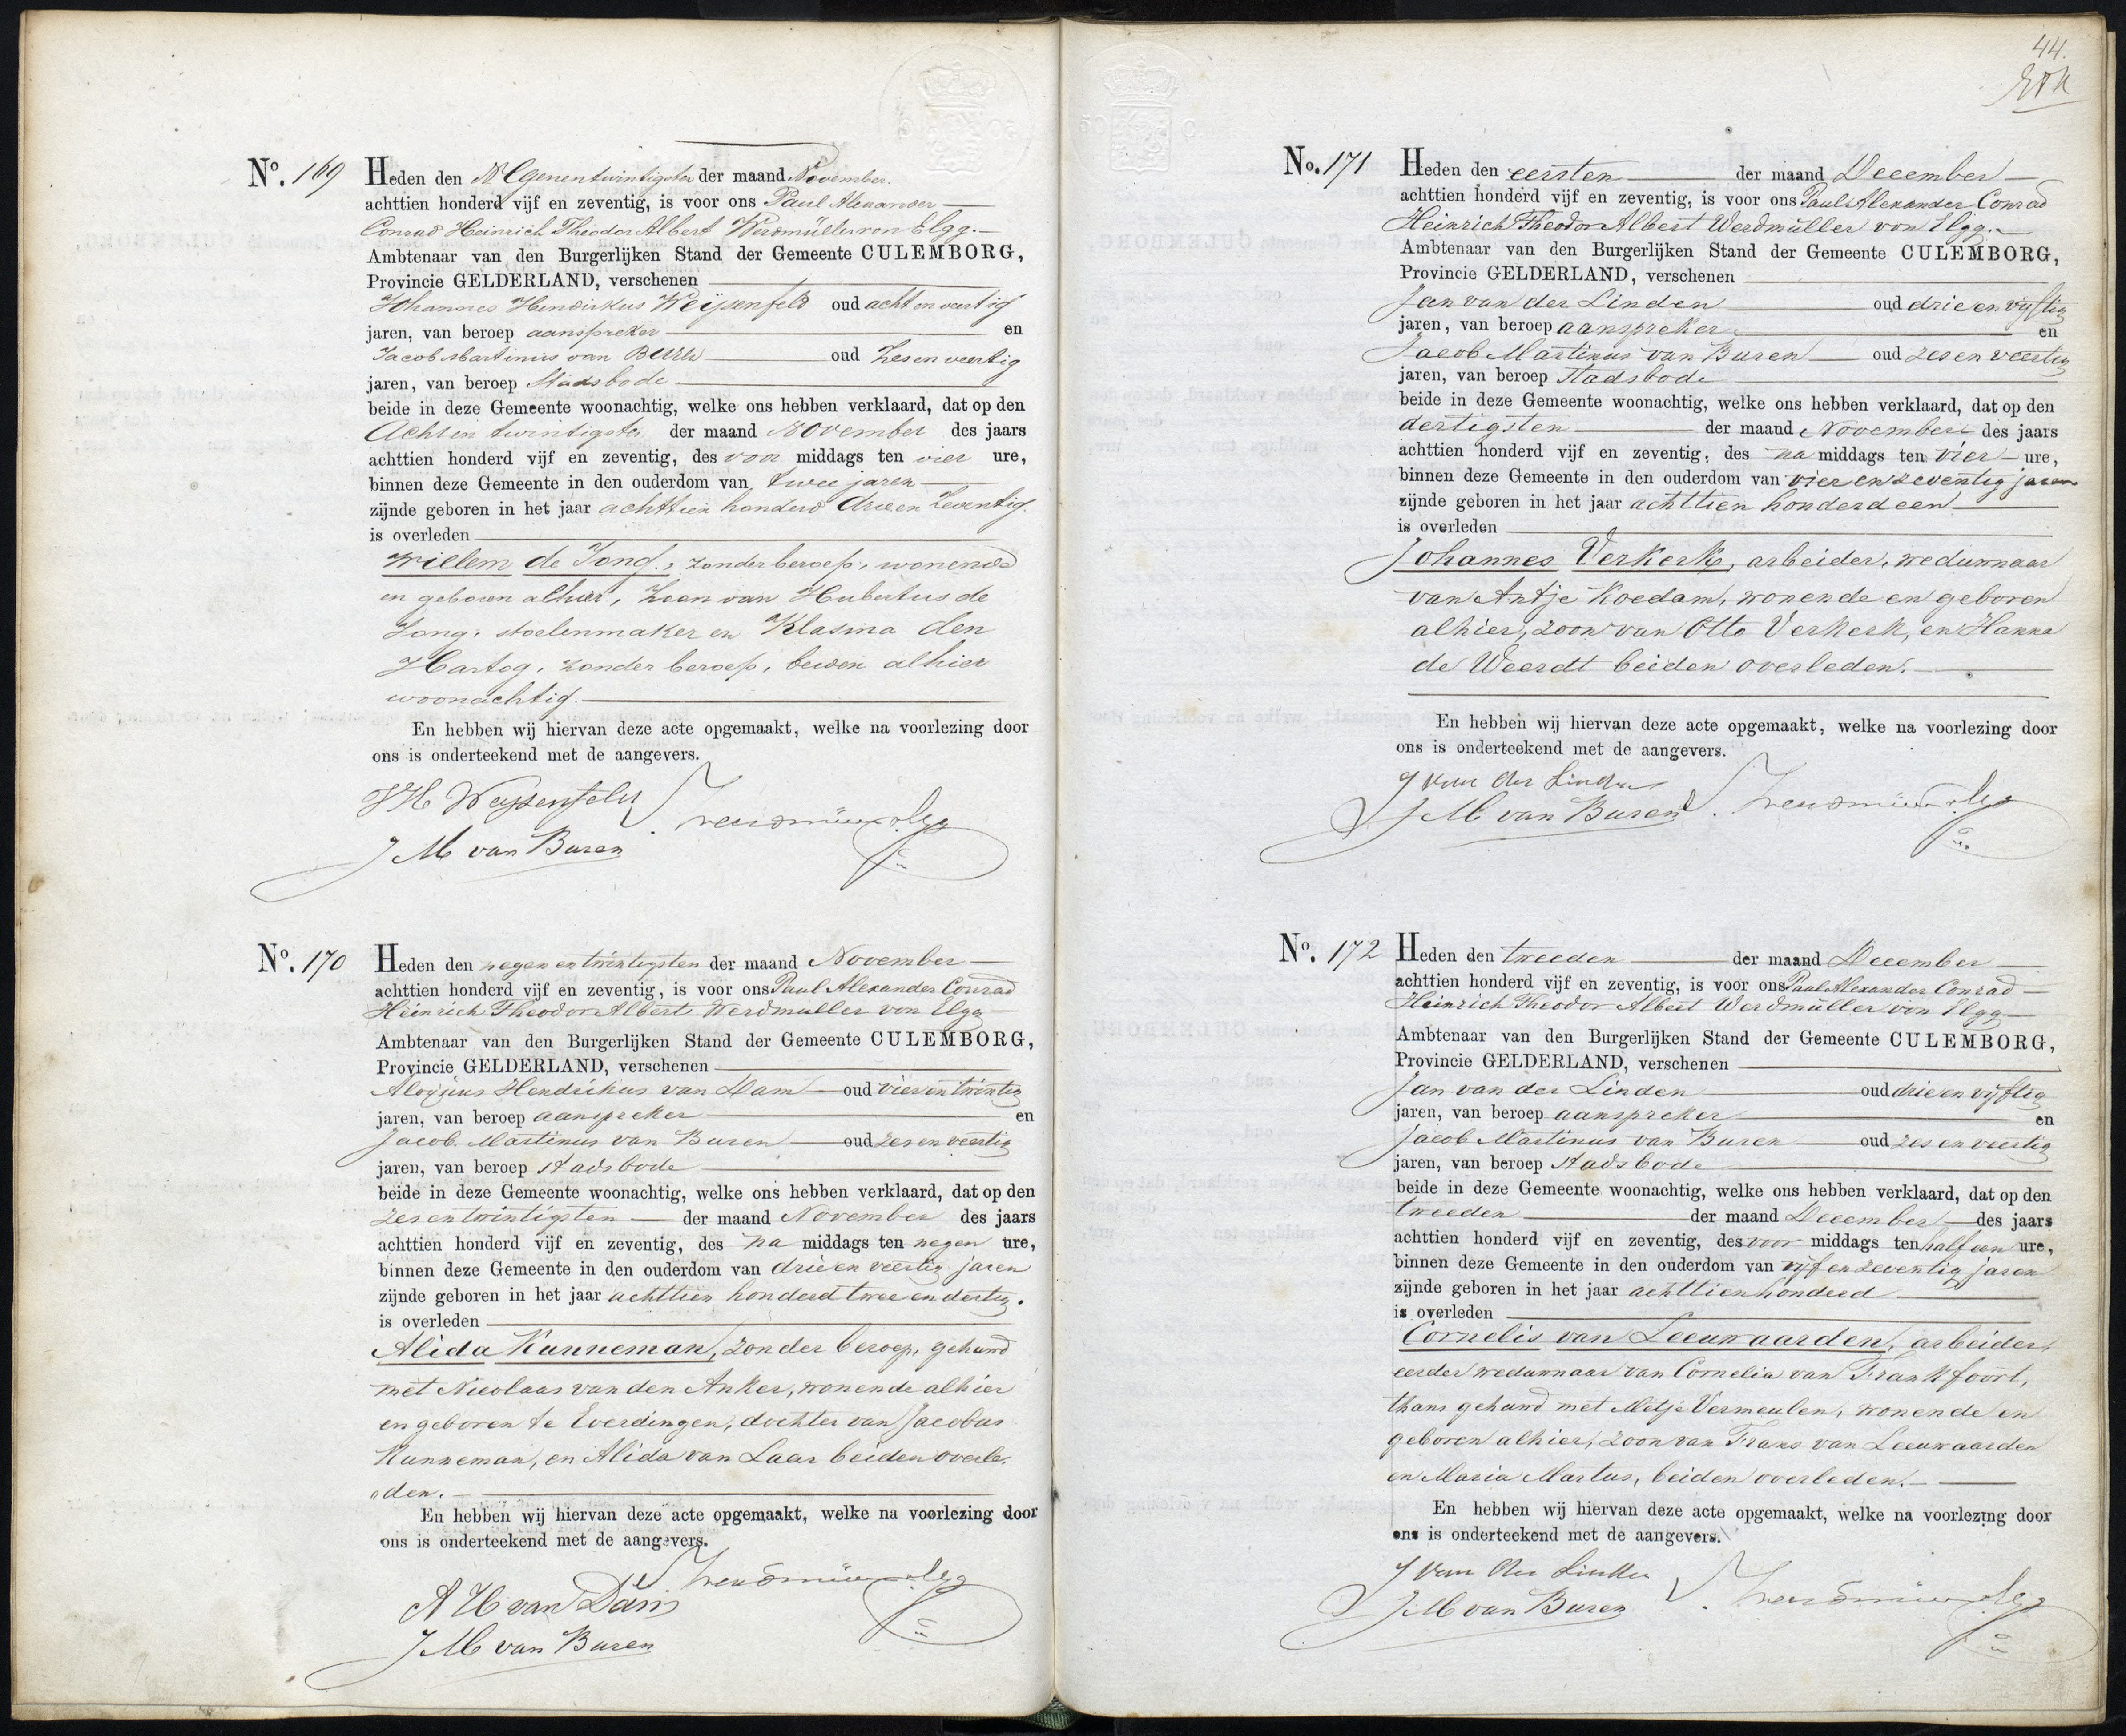 No. 169 Heden den Negenentwintigsten der maand November.
achttien honderd vijf en zeventig, is voor ons Paul Alexander
Conrad Heinrich Theodor Albert Werdmüller von Elgg.
Ambtenaar van den Burgerlijken Stand der Gemeente CULEMBORG,
Provincie GELDERLAND, verschenen
Johannes Hendrikus Weijsenfeld oud acht en veertig
jaren, van beroep aanspreker en
Jacob Martinus van Buren oud zes en veertig
jaren, van beroep Stadsbode
beide in deze Gemeente woonachtig, welke ons hebben verklaard, dat op den
Achten twintigsten der maand November des jaars
achttien honderd vijf en zeventig, des voor middags ten vier ure,
binnen deze Gemeente in den ouderdom van twee jaren
zijnde geboren in het jaar achttien honderd drie en zeventig.
is overleden
Willem de Jong., zonder beroep, wonende
en geboren alhier, zoon van Hubertus de
Jong, stoelenmaker en Klasina den
Hartog, zonder beroep, beiden alhier
woonachtig.
En hebben wij hiervan deze acte opgemaakt, welke na voorlezing door
ons is onderteekend met de aangevers.
JH Weijsenfeld
J M van Buren
No. 170 Heden den negen en twintigsten der maand November
achttien honderd vijf en zeventig, is voor ons Paul Alexander Conrad
Heinrich Theodor Albert Werdmuller von Elgg
Ambtenaar van den Burgerlijken Stand der Gemeente CULEMBORG,
Provincie GELDERLAND, verschenen
Aloijsius Hendrikus van Dam oud vier en twintig
jaren, van beroep aanspreker en
Jacob Martinus van Buren oud zes en veertig
jaren, van beroep stadsbode
beide in deze Gemeente woonachtig, welke ons hebben verklaard, dat op den
zes en twintigsten der maand November des jaars
achttien honderd vijf en zeventig, des na middags ten negen ure,
binnen deze Gemeente in den ouderdom van drie en veertig jaren
zijnde geboren in het jaar achttien honderd twee en dertig.
is overleden
Alida Kunneman, zonder beroep, gehuwd
met Nicolaas van den Anker, wonende alhier
en geboren te Everdingen, dochter van Jacobus
Kunneman, en Alida van Laar beiden overle-
„den.
En hebben wij hiervan deze acte opgemaakt, welke na voorlezing door
ons is onderteekend met de aangevers.
A H van Dam
J M van Buren
44.
No. 171 Heden den eersten der maand December
achttien honderd vijf en zeventig, is voor ons Paul Alexander Conrad
Heinrich Theodor Albert Werdmüller von Elgg.
Ambtenaar van den Burgerlijken Stand der Gemeente CULEMBORG,
Provincie GELDERLAND, verschenen
Jan van der Linden oud drie en vijftig
jaren, van beroep aanspreker en
Jacob Martinus van Buren oud zes en veertig
jaren, van beroep stadsbode
beide in deze Gemeente woonachtig, welke ons hebben verklaard, dat op den
dertigsten der maand November des jaars
achttien honderd vijf en zeventig, des na middags ten vier ure,
binnen deze Gemeente in den ouderdom van vier en zeventig jaren
zijnde geboren in het jaar achttien honderd een
is overleden
Johannes Verkerk, arbeider, weduwnaar
van Antje Koedam, wonende en geboren
alhier, zoon van Otto Verkerk, en Hanna
de Weerdt beiden overleden.
En hebben wij hiervan deze acte opgemaakt, welke na voorlezing door
ons is onderteekend met de aangevers.
J van der Linden
J M van Buren
No. 172 Heden den tweeden der maand December
achttien honderd vijf en zeventig, is voor ons Paul Alexander Conrad
Heinrich Theodor Albert Werdmüller von Elgg
Ambtenaar van den Burgerlijken Stand der Gemeente CULEMBORG,
Provincie GELDERLAND, verschenen
Jan van der Linden oud drie en vijftig
jaren, van beroep aanspreker en
Jacob Martinus van Buren oud zes en veertig
jaren, van beroep Stadsbode
beide in deze Gemeente woonachtig, welke ons hebben verklaard, dat op den
tweeden der maand December des jaars
achttien honderd vijf en zeventig, des voor middags ten half een ure,
binnen deze Gemeente in den ouderdom van vijf en zeventig jaren
zijnde geboren in het jaar achttien honderd
is overleden
Cornelis van Leeuwaarden, arbeider,
eerder weduwnaar van Cornelia van Frankfoort,
thans gehuwd met Metje Vermeulen, wonende en
geboren alhier, zoon van Frans van Leeuwaarden
en Maria Martus, beiden overleden.
En hebben wij hiervan deze acte opgemaakt, welke na voorlezing door
ons is onderteekend met de aangevers.
J van der Linden
J M van Buren